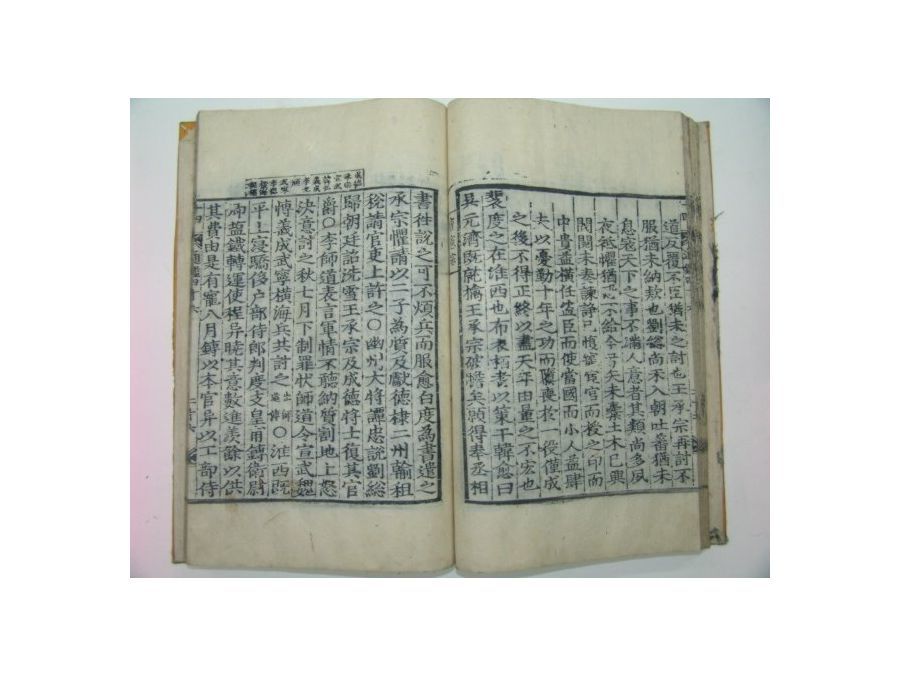 道反覆不臣猶未之討也王承宗再討不
服猶未納款也劉緫尚未入朝吐蕃猶未
息哀天下之事不滿人意者其類尚多夙
夜祗懼猶
中貴益橫任盜臣而使當國而小人益肆
夫以憂勤十年之功而隳喪於一役僅成
之後不得正終以盡天年由董之不宏也
裴度之在淮西也布衣栢耆以策干韓愈曰
吳元濟既就擒王承宗破膽矣願得奉丞相
書徃說之可不煩兵而服愈白度為書遣之
承宗懼請以二子為質及獻德棣二州輸租
稅請官吏上許之○幽州大將譚忠說劉緫
歸朝廷詔洗雪王承宗及成德將士復其官
爵○李師道表言軍情不聽納質割地上怒
決意討之秋七月下制罪狀師道令宣武魏
愽義成武寧橫海兵共討之○淮西既
平上寖驕侈户部侍郎判度支皇甫鏄衛尉
卿鹽鐵轉運使程异曉其意數進羨餘以供
其費由是有寵八月鏄以本官异以工部侍